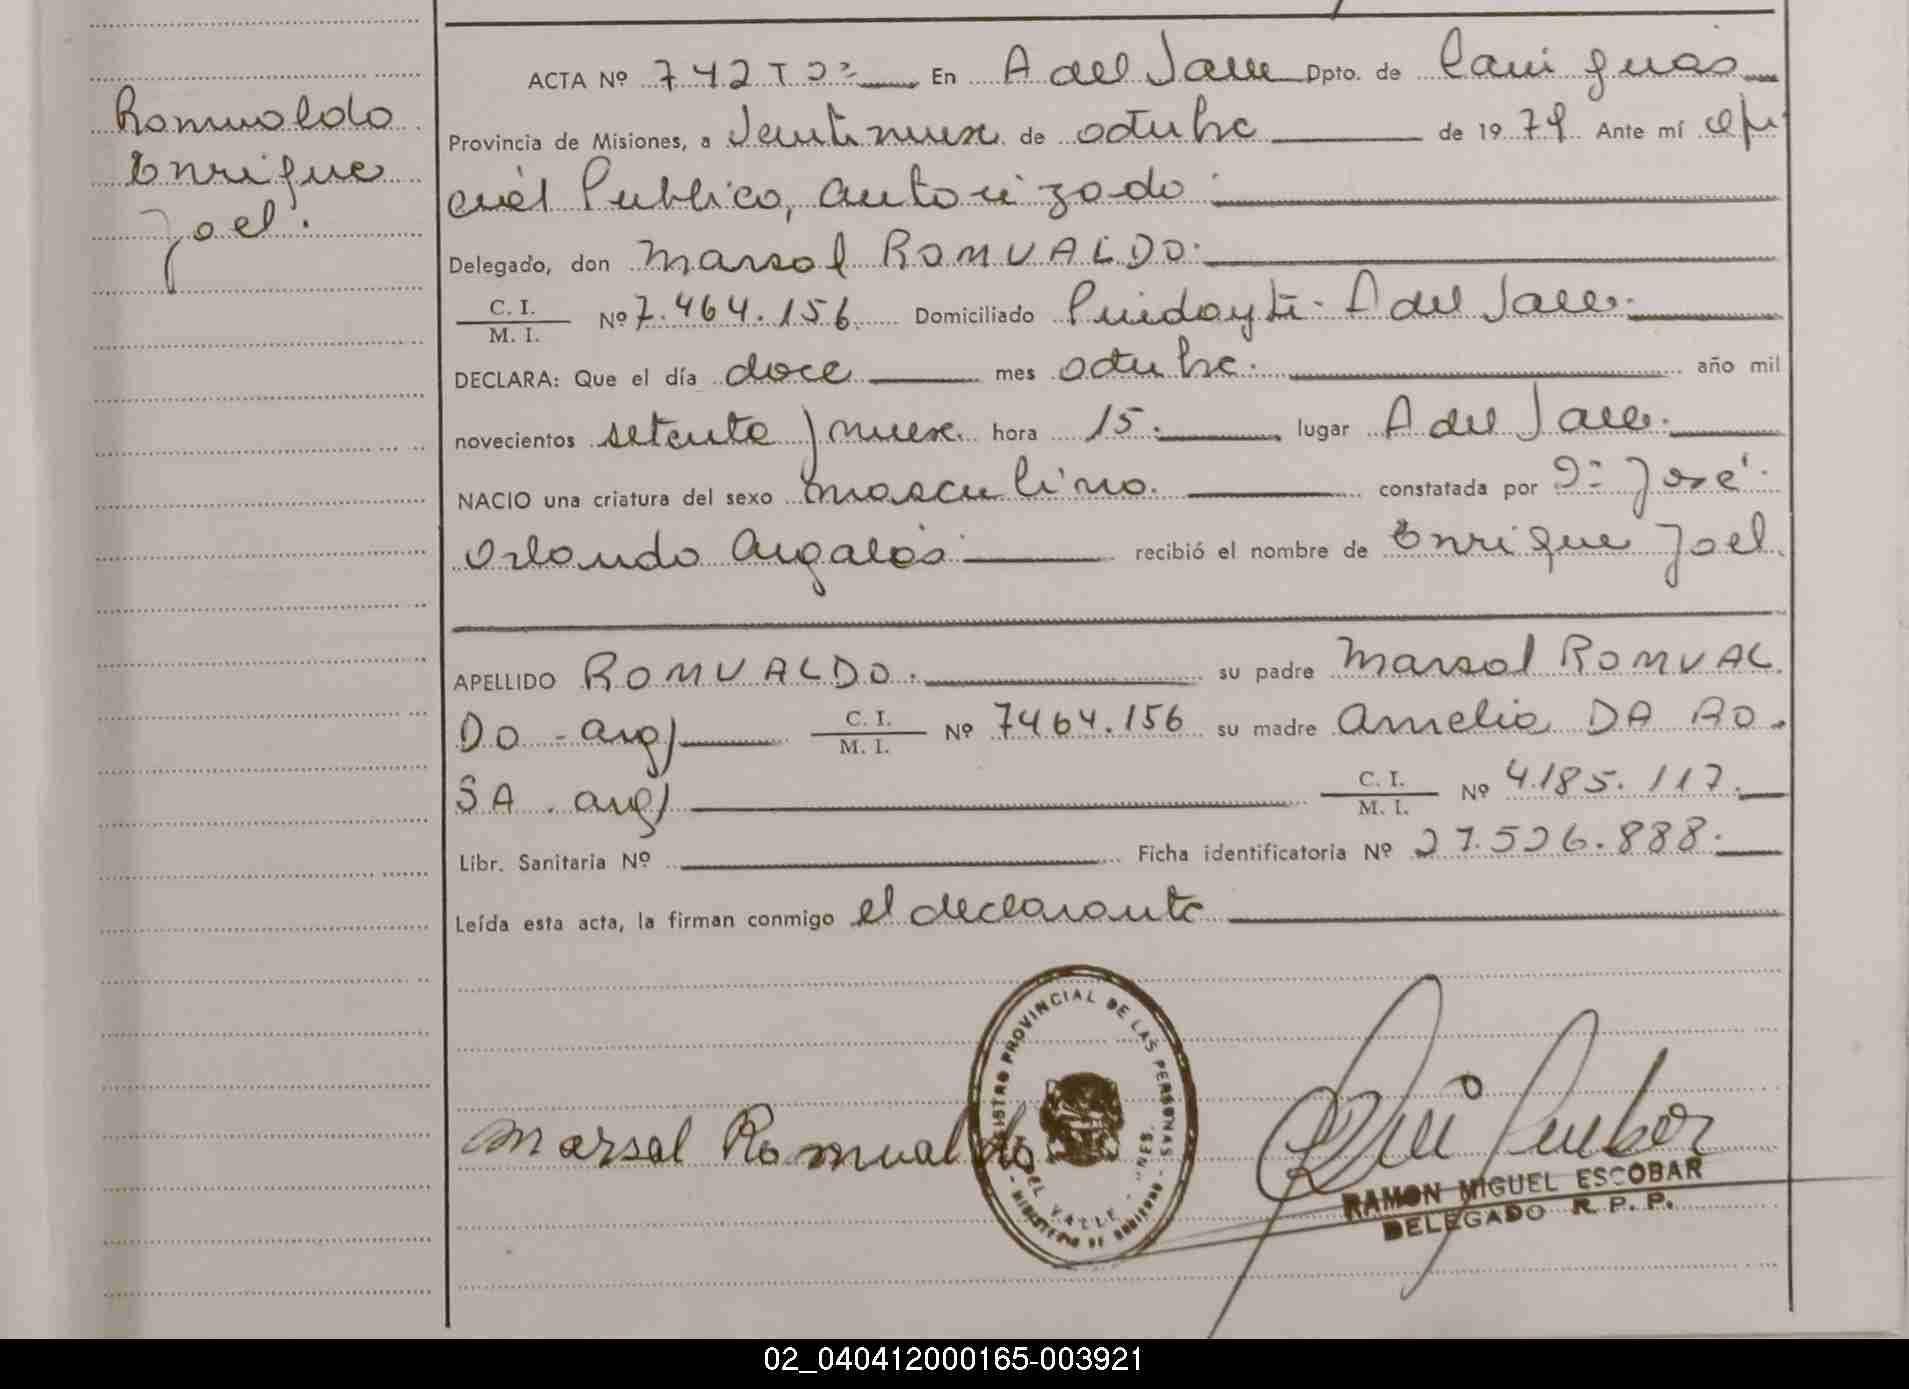 Romualdo
Enrique
Joel.
ACTA Nº 742 Tº 2º En A del Valle Dpto. de Cainguás
Provincia de Misiones, a Veintinueve de octubre de 1979 Ante mí Ofi
cial Publico, autorizado
Delegado, don Marsol ROMUALDO.
C. I.
M. I. Nº 7.464.156 Domiciliado Pindayti - A del Valle.
DECLARA: Que el día doce mes octubre. año mil
novecientos setenta y nueve. hora 15. lugar A del Valle.
NACIO una criatura del sexo masculino. constatada por Dº José
Orlando Argarás recibió el nombre de Enrique Joel.
APELLIDO ROMUALDO. su padre Marsol ROMUAL
DO - arg/ C. I.
M. I. Nº 7464.156 su madre Amelia DA RO
SA - arg/ C. I.
M. I. Nº 4.185.117.
Libr. Sanitaria Nº Ficha identificatoria Nº 27.526.888.
Leída esta acta, la firman conmigo el declarante
Marsal Romualdo
REGISTRO PROVINCIAL DE LAS PERSONAS
DEL VALLE
MINISTERIO DE GOBIERNO
RAMON MIGUEL ESCOBAR
DELEGADO R. P. P.
02_040412000165-003921